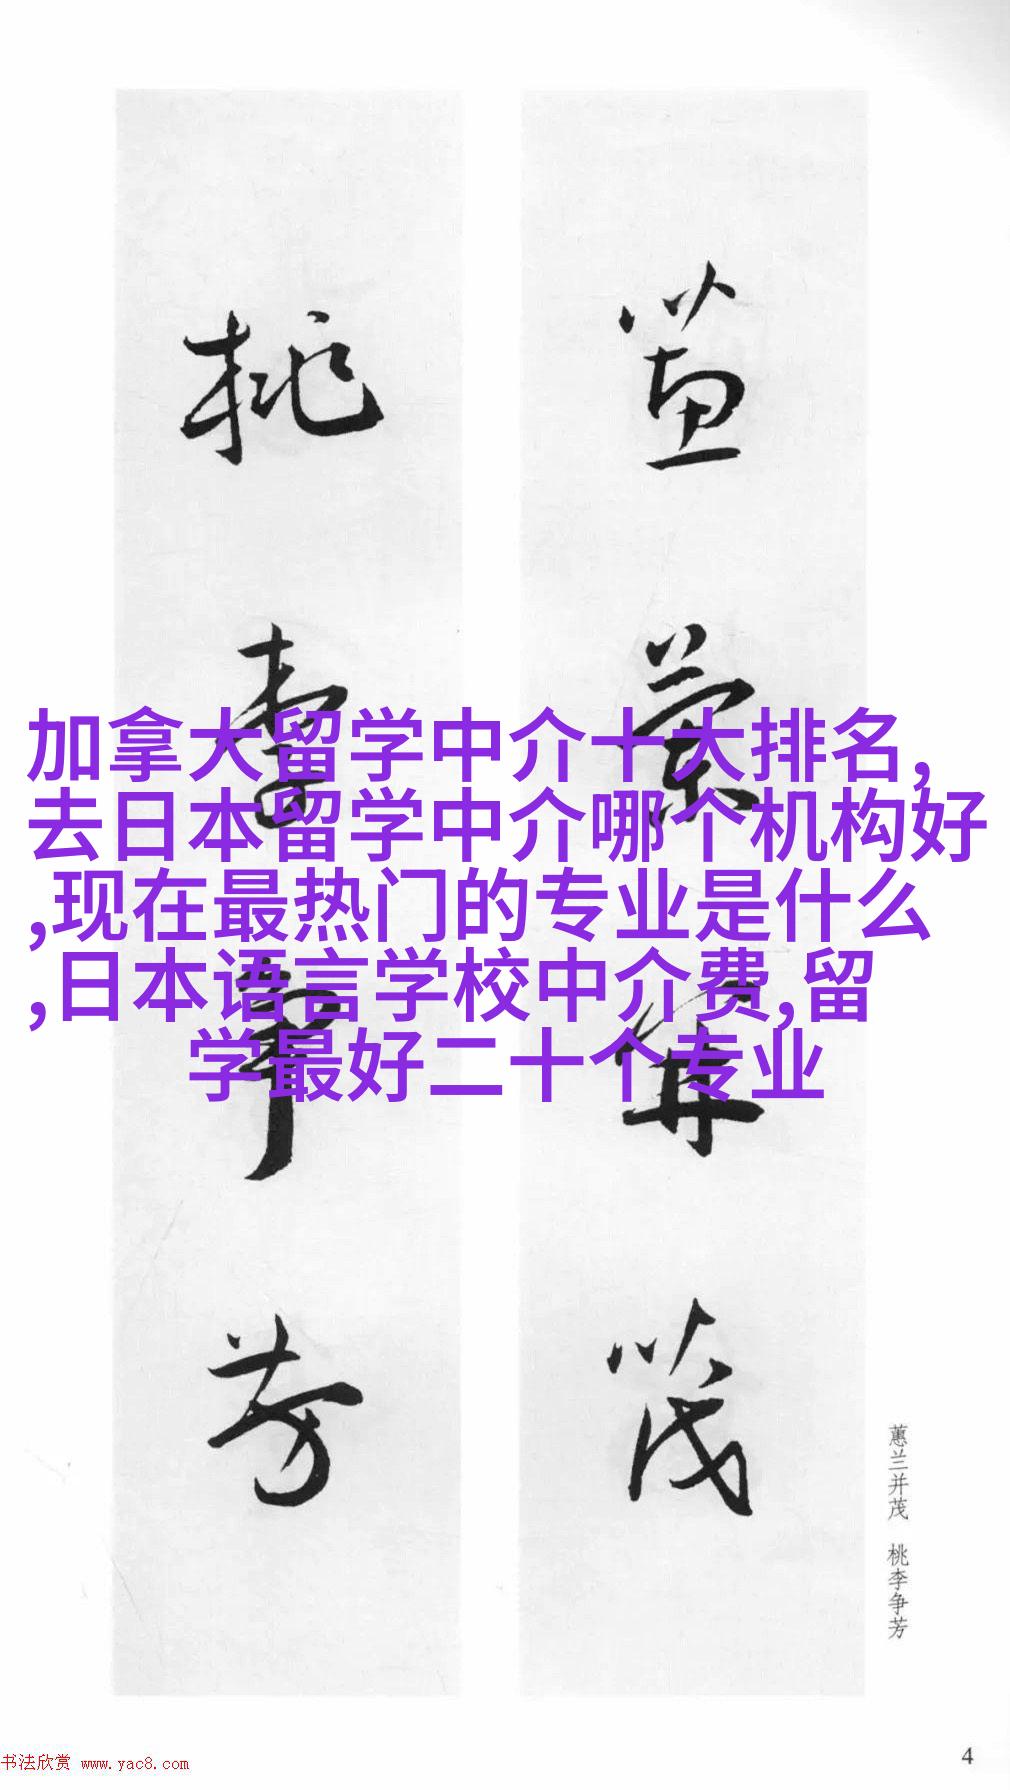 蕙兰并茂
桃李争芳
加拿大留学中介十大排名,
去日本留学中介哪个机构好
,现在最热门的专业是什么
,日本语言学校中介费,留
学最好二十个专业
蕙兰并茂 桃李争芳
书法欣赏 www.yac8.com
4